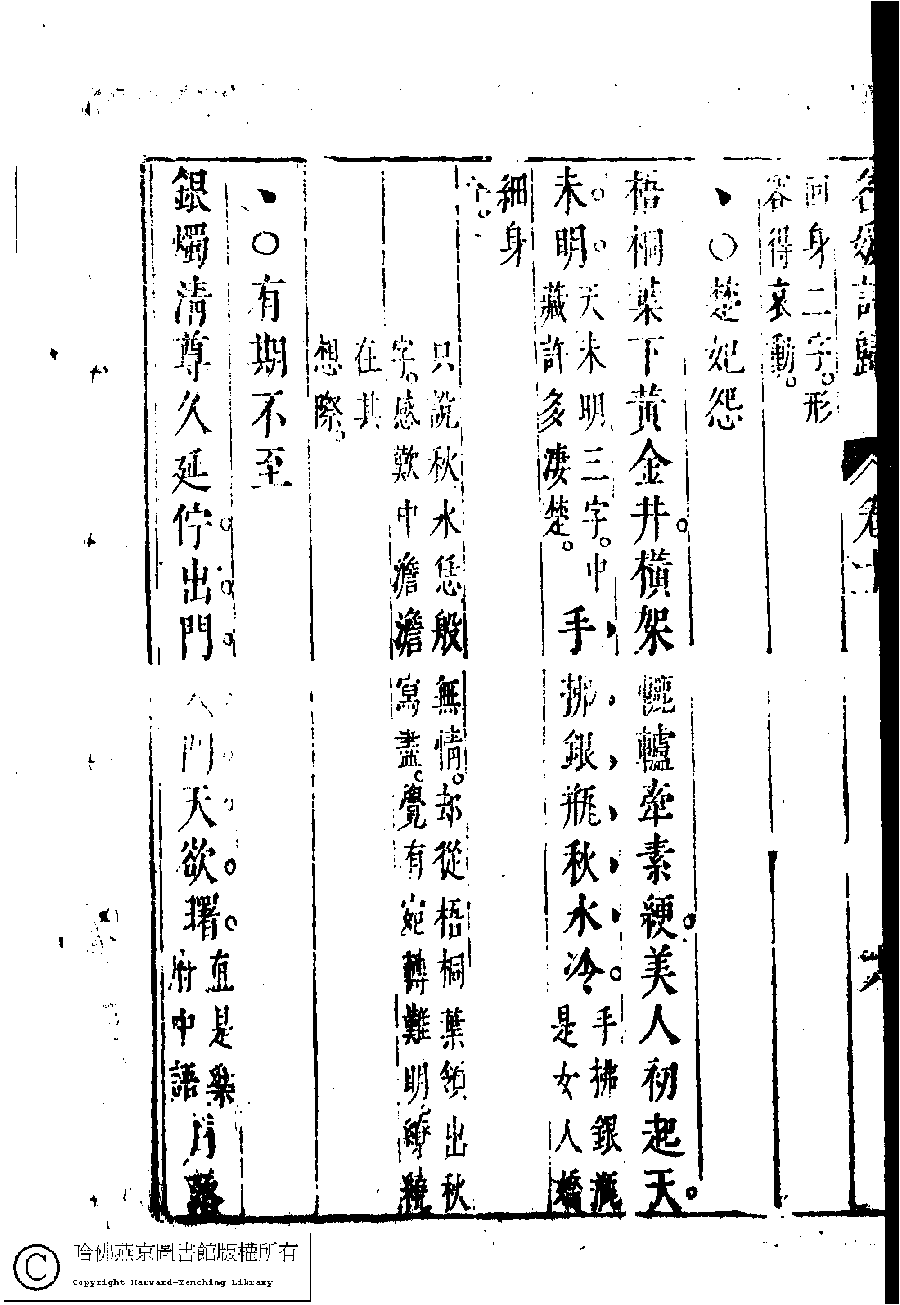 名媛詩歸 卷十
回身二字。形
容得哀動。
○楚妃怨
梧桐葉下黃金井。橫架轆轤牽素綆。美人初起天。
未明。天未明三字。中
藏許多凄楚。
手拂銀瓶秋水冷。手拂銀瓶
是女人嬌
細身
只說秋水恁般無情。却從梧桐葉領出秋
字。感歎中澹澹寫盡。覺有宛轉難明
在其
想際。
○有期不至
銀燭清尊久延佇。出門入門天欲曙。直是樂
府中語
月落
哈佛燕京圖書館版權所有
Copyright Harvard-Yenching Library